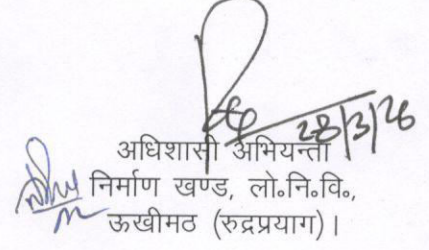 28/3/26
अधिशासी अभियन्ता
निर्माण खण्ड, लो॰नि॰वि॰,
ऊखीमठ (रुद्रप्रयाग)।